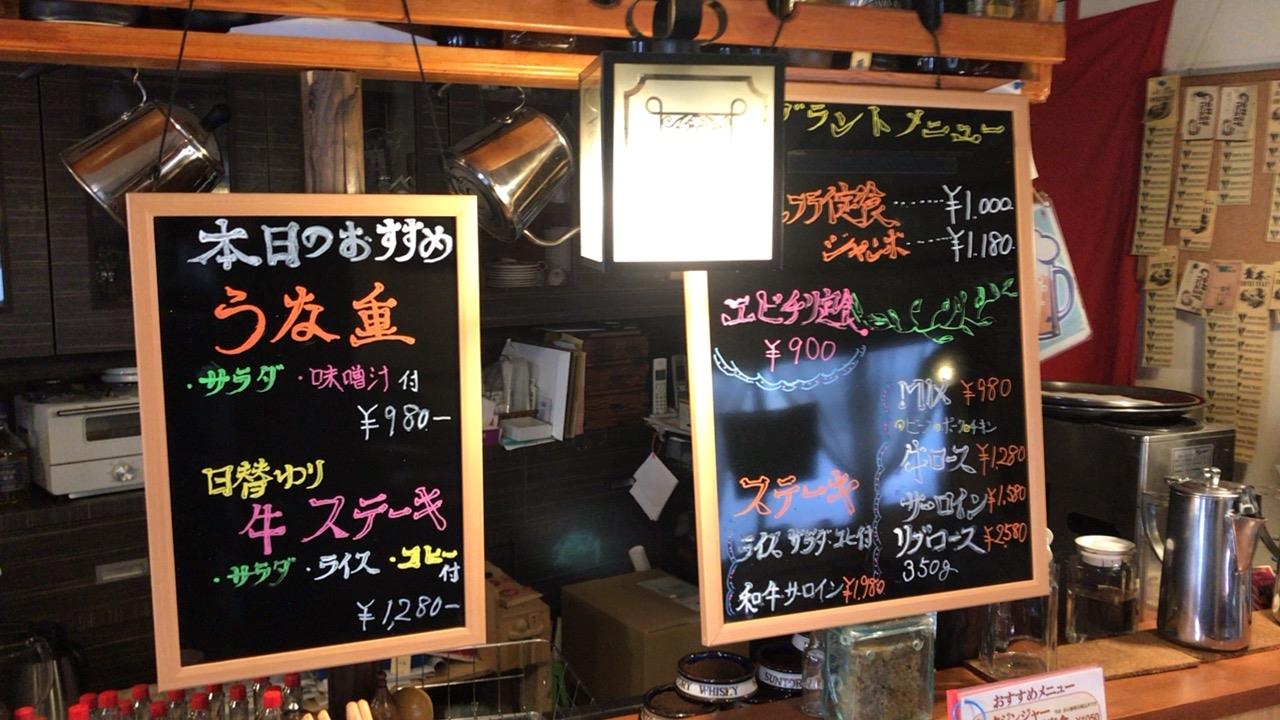 本日のおすすめ
うな重
・サラダ ・味噌汁付
¥980-
日替ゆり
牛ステーキ
・サラダ ・ライス ・コーヒー付
¥1,280-
グランドメニュー
フライ定食 ¥1.000
ジャンボ ¥1.180
エビチリ定食
¥900
ステーキ
ライス、サラダ・コーヒー付
和牛サーロイン ¥1,980
MIX ¥980
牛ロース ¥1,280
サーロイン ¥1,580
リブロース ¥2580
350g
WHISKY
おすすめメニュー